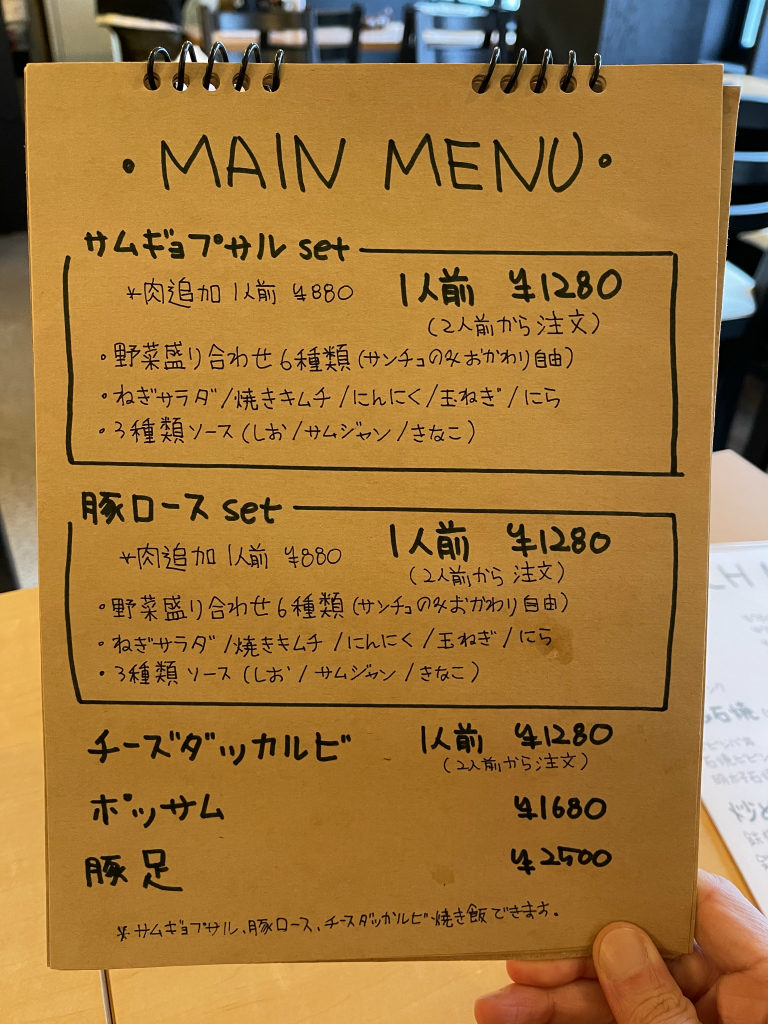 ・MAIN MENU・
サムギョプサル set
*肉追加 1人前 ¥880 1人前 ¥1280
(2人前から注文)
・野菜盛り合わせ6種類(サンチュのみおかわり自由)
・ねぎサラダ/焼きキムチ/にんにく/玉ねぎ/にら
・3種類ソース(しお/サムジャン/きなこ)
豚ロース set
*肉追加 1人前 ¥880 1人前 ¥1280
(2人前から注文)
・野菜盛り合わせ6種類(サンチュのみおかわり自由)
・ねぎサラダ/焼きキムチ/にんにく/玉ねぎ/にら
・3種類ソース(しお/サムジャン/きなこ)
チーズダッカルビ 1人前 ¥1280
(2人前から注文)
ポッサム ¥1680
豚足 ¥2500
*サムギョプサル、豚ロース、チーズダッカルビ焼き飯できます。
石焼